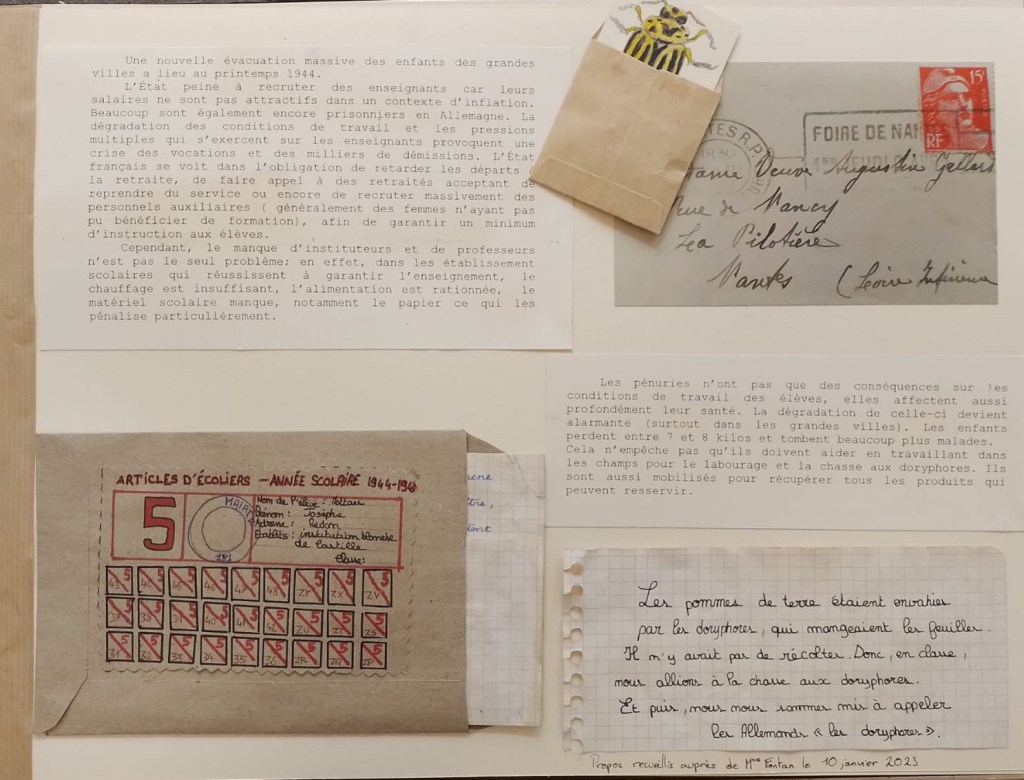 Une nouvelle évacuation massive des enfants des grandes
villes a lieu au printemps 1944.
L'État peine à recruter des enseignants car leurs
salaires ne sont pas attractifs dans un contexte d'inflation.
Beaucoup sont également encore prisonniers en Allemagne. La
dégradation des conditions de travail et les pressions
multiples qui s'exercent sur les enseignants provoquent une
crise des vocations et des milliers de démissions. L'État
français se voit dans l'obligation de retarder les départs à
la retraite, de faire appel à des retraités acceptant de
reprendre du service ou encore de recruter massivement des
personnels auxiliaires ( généralement des femmes n'ayant pas
pu bénéficier de formation), afin de garantir un minimum
d'instruction aux élèves.
Cependant, le manque d'instituteurs et de professeurs
n'est pas le seul problème; en effet, dans les établissement
scolaires qui réussissent à garantir l'enseignement, le
chauffage est insuffisant, l'alimentation est rationnée, le
matériel scolaire manque, notamment le papier ce qui les
pénalise particulièrement.
15F
RF
TES R.P.
FOIRE DE NAN
Veuve Augustin
Rue de Nancy
La Pilotière
Nantes (Loire Inférieure
Les pénuries n'ont pas que des conséquences sur les
conditions de travail des élèves, elles affectent aussi
profondément leur santé. La dégradation de celle-ci devient
alarmante (surtout dans les grandes villes). Les enfants
perdent entre 7 et 8 kilos et tombent beaucoup plus malades.
Cela n'empêche pas qu'ils doivent aider en travaillant dans
les champs pour le labourage et la chasse aux doryphores. Ils
sont aussi mobilisés pour récupérer tous les produits qui
peuvent resservir.
ARTICLES D'ÉCOLIERS - ANNÉE SCOLAIRE 1944-194
5
MAIRIE
Nom de l'élève :
Prénom : Josèphe
Adresse : Redon
Établits : institution blanche
de Castille
Classe :
5 5 5 5 5 5 5 5 5
5 5 5 5 5 5 5 5 5
5 5 5 5 5 5 5 5 5
Les pommes de terre étaient envahies
par les doryphores, qui mangeaient les feuilles.
Il n'y avait pas de récoltes. Donc, en classe,
nous allions à la chasse aux doryphores.
Et puis, nous nous sommes mis à appeler
les Allemands « les doryphores ».
Propos recueillis auprès de Mme Fontan le 10 janvier 2023